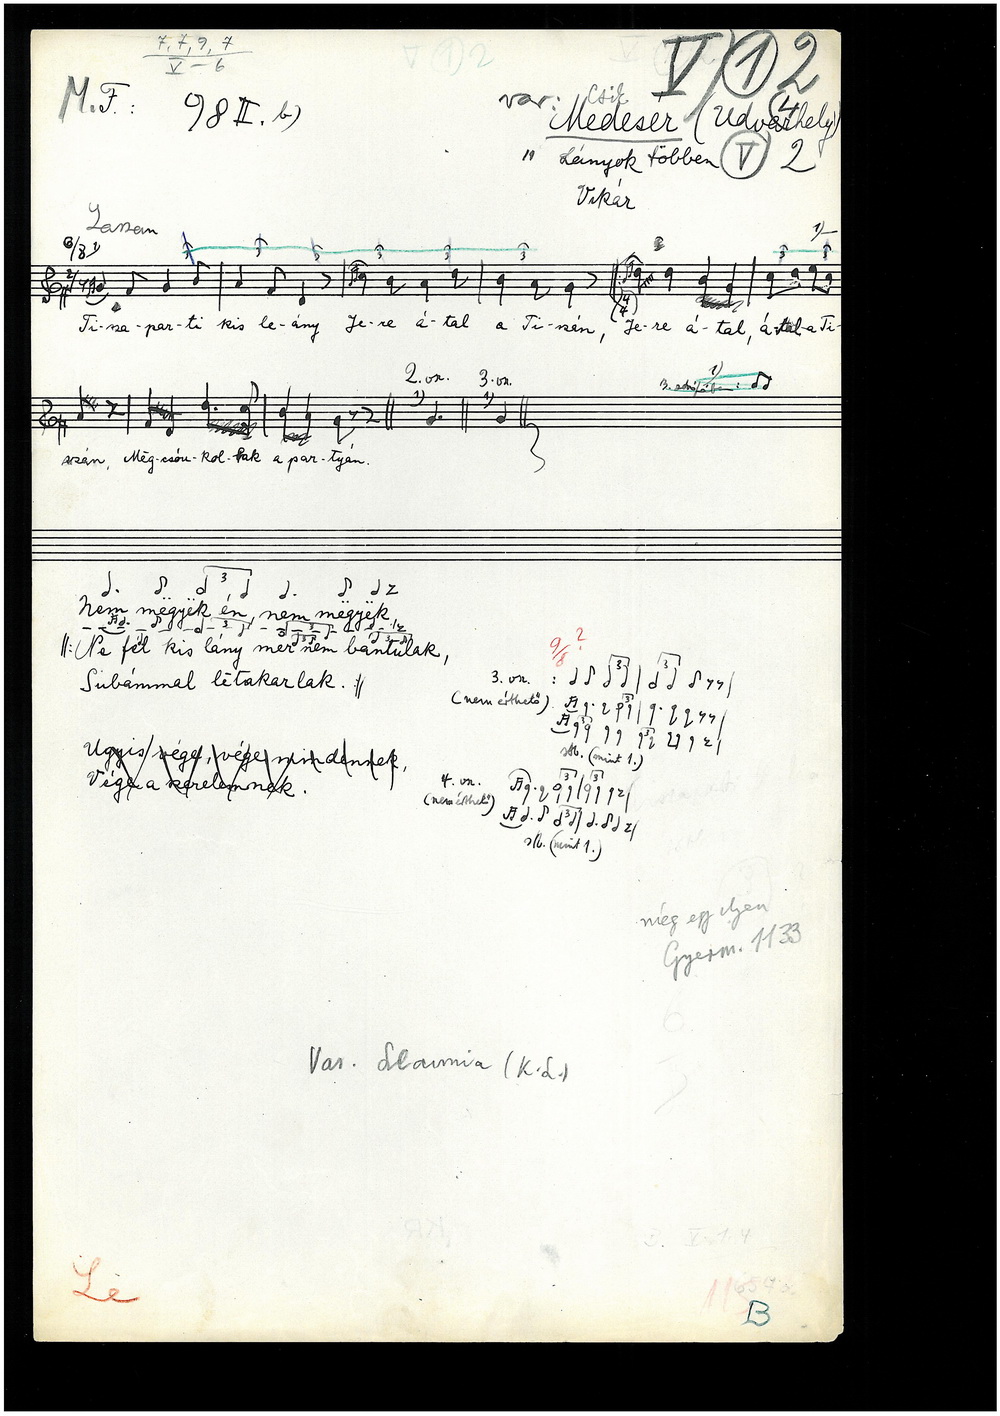 7, 7, 9, 7
V – 6
V 1 2
M.F.: 98 II. b)
var: Csik
Medesér (Udvarhely)
" Lányok többen V 2
Vikár
Lassan
6/8
Ti-sza-par-ti kis le-ány Je-re á-tal a Ti-szán, Je-re á-tal, á-tal a Ti-
szán, Még-csóu-kol-lak a par-tyán.
2. vn. 3. vn.
1) 1)
Nem mëgyëk én, nem mëgyëk,
||: Ne fél kis lány mer nem bántulak,
Subámmal létakarlak. :||
9/8 ?
3. vn. :
(nem érthető)
stb. (mint 1.)
Ugyis vége, vége mindennek,
Vége a szerelemnek.
4. vn.
(nem érthető)
stb. (mint 1.)
még egy ilyen
Gyerm. 1133
Var. Slavonia (K.L.)
Lé
B